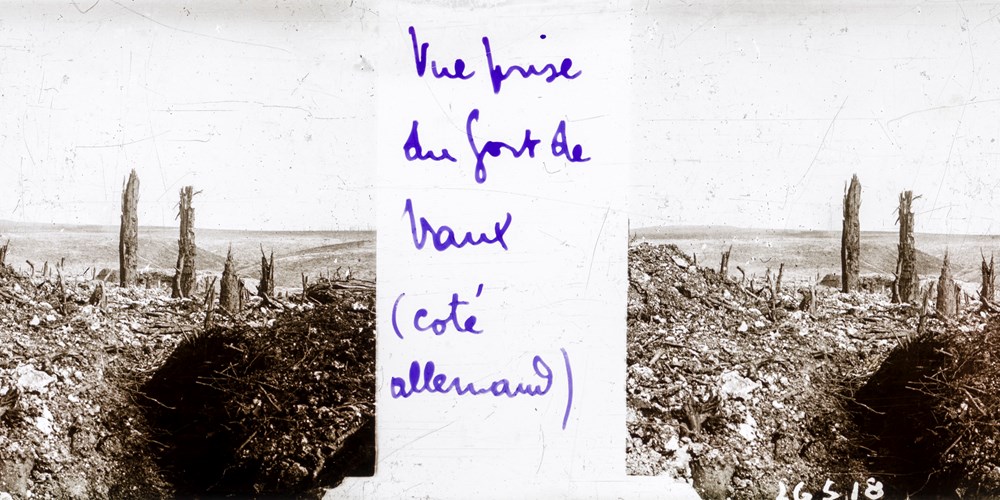 Vue prise
du fort de
Vaux
(coté
allemand)
26518